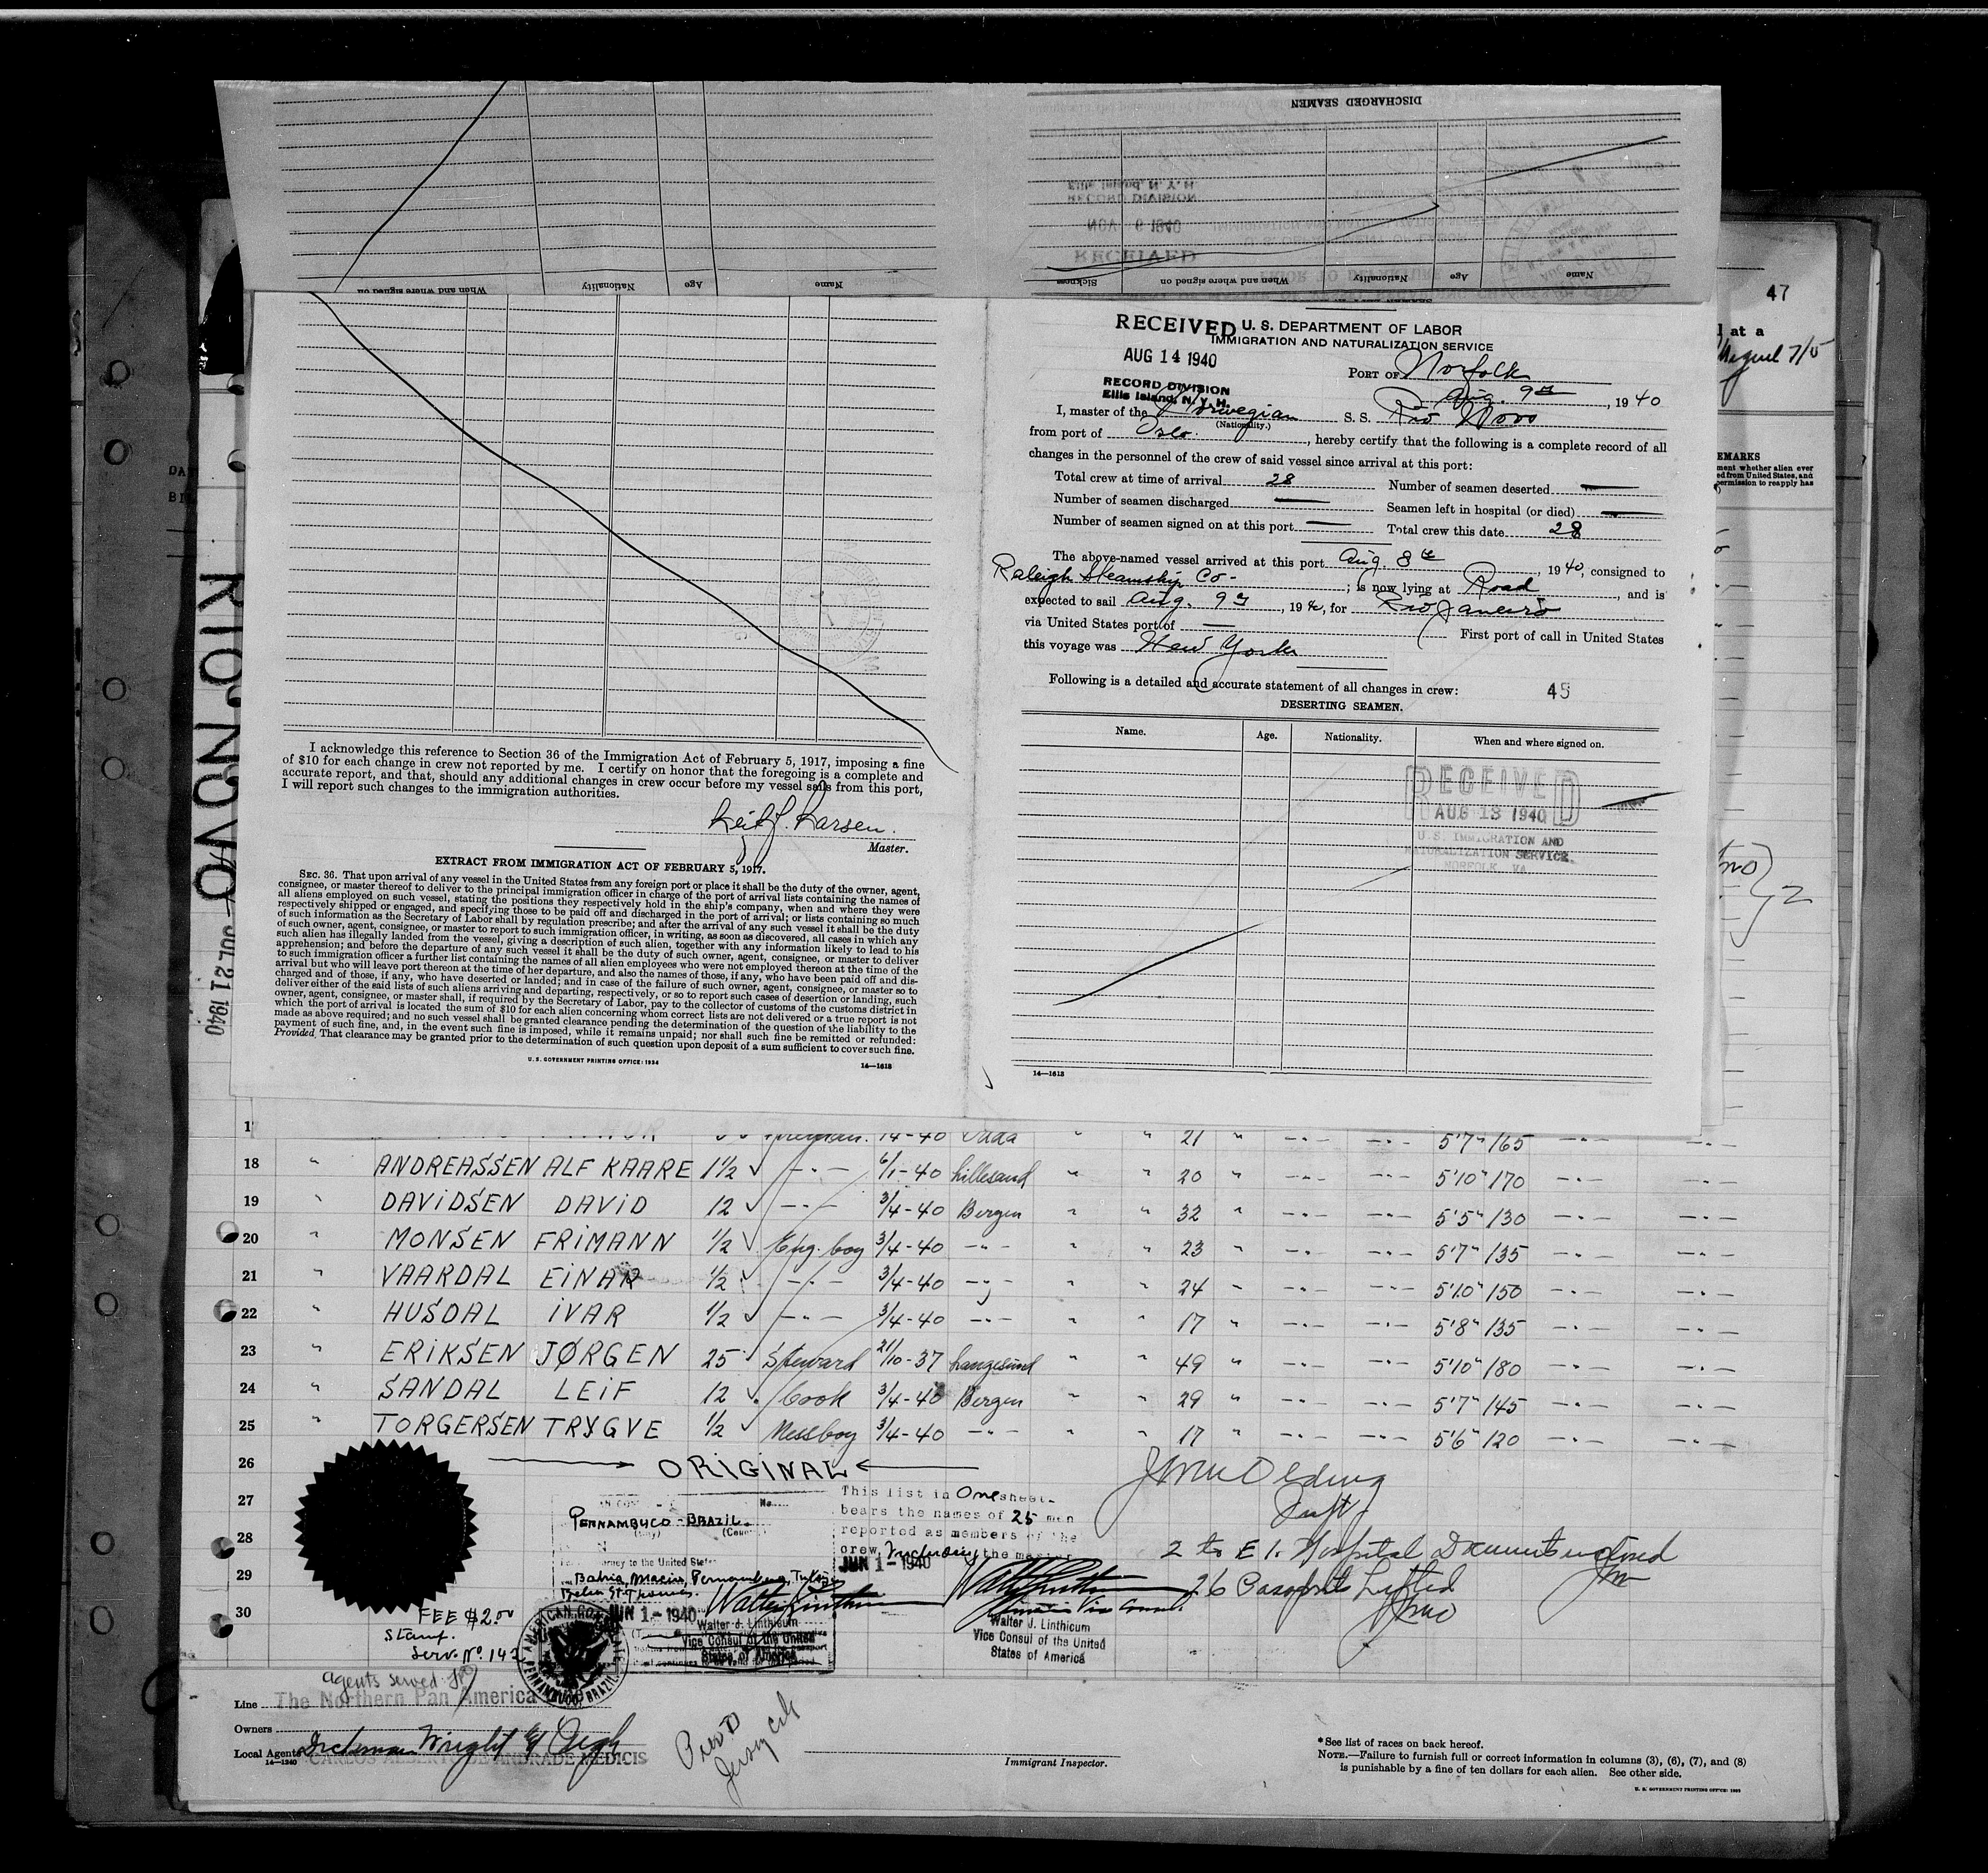 DISCHARGED SEAMEN
Ellis Island, N. Y. H.
RECORD DIVISION
NOV 6 1940
RECEIVED
When and where signed on
Nationality
Age
Name
Sickness
When and where signed on
Nationality
Age
Name
47
at a
EMARKS
ment whether alien ever
ed from United States, and
permission to reapply has
RIO NOVO
JUL 21 1940
I acknowledge this reference to Section 36 of the Immigration Act of February 5, 1917, imposing a fine
of $10 for each change in crew not reported by me. I certify on honor that the foregoing is a complete and
accurate report, and that, should any additional changes in crew occur before my vessel sails from this port,
I will report such changes to the immigration authorities.
Leif J. Larsen.
Master.
EXTRACT FROM IMMIGRATION ACT OF FEBRUARY 5, 1917.
SEC. 36. That upon arrival of any vessel in the United States from any foreign port or place it shall be the duty of the owner, agent,
consignee, or master thereof to deliver to the principal immigration officer in charge of the port of arrival lists containing the names of
all aliens employed on such vessel, stating the positions they respectively hold in the ship's company, when and where they were
respectively shipped or engaged, and specifying those to be paid off and discharged in the port of arrival; or lists containing so much
of such information as the Secretary of Labor shall by regulation prescribe; and after the arrival of any such vessel it shall be the duty
of such owner, agent, consignee, or master to report to such immigration officer, in writing, as soon as discovered, all cases in which any
such alien has illegally landed from the vessel, giving a description of such alien, together with any information likely to lead to his
apprehension; and before the departure of any such vessel it shall be the duty of such owner, agent, consignee, or master to deliver
to such immigration officer a further list containing the names of all alien employees who were not employed thereon at the time of the
arrival but who will leave port thereon at the time of her departure, and also the names of those, if any, who have been paid off and dis-
charged and of those, if any, who have deserted or landed; and in case of the failure of such owner, agent, consignee, or master so to
deliver either of the said lists of such aliens arriving and departing, respectively, or so to report such cases of desertion or landing, such
owner, agent, consignee, or master shall, if required by the Secretary of Labor, pay to the collector of customs of the customs district in
which the port of arrival is located the sum of $10 for each alien concerning whom correct lists are not delivered or a true report is not
made as above required; and no such vessel shall be granted clearance pending the determination of the question of the liability to the
payment of such fine, and, in the event such fine is imposed, while it remains unpaid; nor shall such fine be remitted or refunded:
Provided, That clearance may be granted prior to the determination of such question upon deposit of a sum sufficient to cover such fine.
U. S. GOVERNMENT PRINTING OFFICE: 1934
14—1618
RECEIVED
AUG 14 1940
RECORD DIVISION
Ellis Island, N. Y. H.
U. S. DEPARTMENT OF LABOR
IMMIGRATION AND NATURALIZATION SERVICE
PORT OF Norfolk
Aug. 9th, 1940
I, master of the Norwegian S. S. Rio Novo
(Nationality.)
from port of Oslo, hereby certify that the following is a complete record of all
changes in the personnel of the crew of said vessel since arrival at this port:
Total crew at time of arrival 28 Number of seamen deserted —
Number of seamen discharged — Seamen left in hospital (or died) —
Number of seamen signed on at this port — Total crew this date 28
The above-named vessel arrived at this port Aug. 8th, 1940, consigned to
Raleigh Steamship Co. ; is now lying at Road, and is
expected to sail Aug. 9th, 1940, for Rio Janeiro
via United States port of — First port of call in United States
this voyage was New York
Following is a detailed and accurate statement of all changes in crew: 45
DESERTING SEAMEN.
Name. Age. Nationality. When and where signed on.
RECEIVED
AUG 13 1940
U. S. IMMIGRATION AND
NATURALIZATION SERVICE
NORFOLK, VA.
14—1618
14-40 Odda " " 21 " 5'7" 165
18 " ANDREASSEN ALF KAARE 1½ —"— 6/1-40 Lillesand " " 20 " 5'10" 170
19 " DAVIDSEN DAVID 12 —"— 3/4-40 Bergen " " 32 " 5'5" 130
20 " MONSEN FRIMANN 1/2 Eng. boy 3/4-40 —"— " " 23 " 5'7" 135
21 " VAARDAL EINAR 1/2 —"— 3/4-40 —"— " " 24 " 5'10" 150
22 " HUSDAL IVAR 1/2 —"— 3/4-40 —"— " " 17 " 5'8" 135
23 " ERIKSEN JØRGEN 25 Steward 21/10-37 Langesund " " 49 " 5'10" 180
24 " SANDAL LEIF 12 Cook 3/4-40 Bergen " " 29 " 5'7" 145
25 " TORGERSEN TRYGVE 1/2 Messboy 3/4-40 —"— " " 17 " 5'6" 120
26 ORIGINAL
27
28
29
30
PERNAMBUCO - BRAZIL.
(City) (Country)
JUN 1 - 1940
Walter J. Linthicum
Vice Consul of the United
States of America
AMERICAN CONSULATE
PERNAMBUCO, BRAZIL
This list in One sheet
bears the names of 25 men
reported as members of the
crew, including the master
JUN 1 - 1940
Walter J. Linthicum
Vice Consul of the United
States of America
2 to E I. Hospital Documents
26 Passports Lifted
FEE $2.00
Stamp.
Serv. No. 142
Agents served
Line The Northern Pan America
Owners
Local Agents
14—1240
CARLOS ALBERTO DE ANDRADE MEDICIS
Pier D
Jersey City
Immigrant Inspector.
*See list of races on back hereof.
NOTE.—Failure to furnish full or correct information in columns (3), (6), (7), and (8)
is punishable by a fine of ten dollars for each alien. See other side.